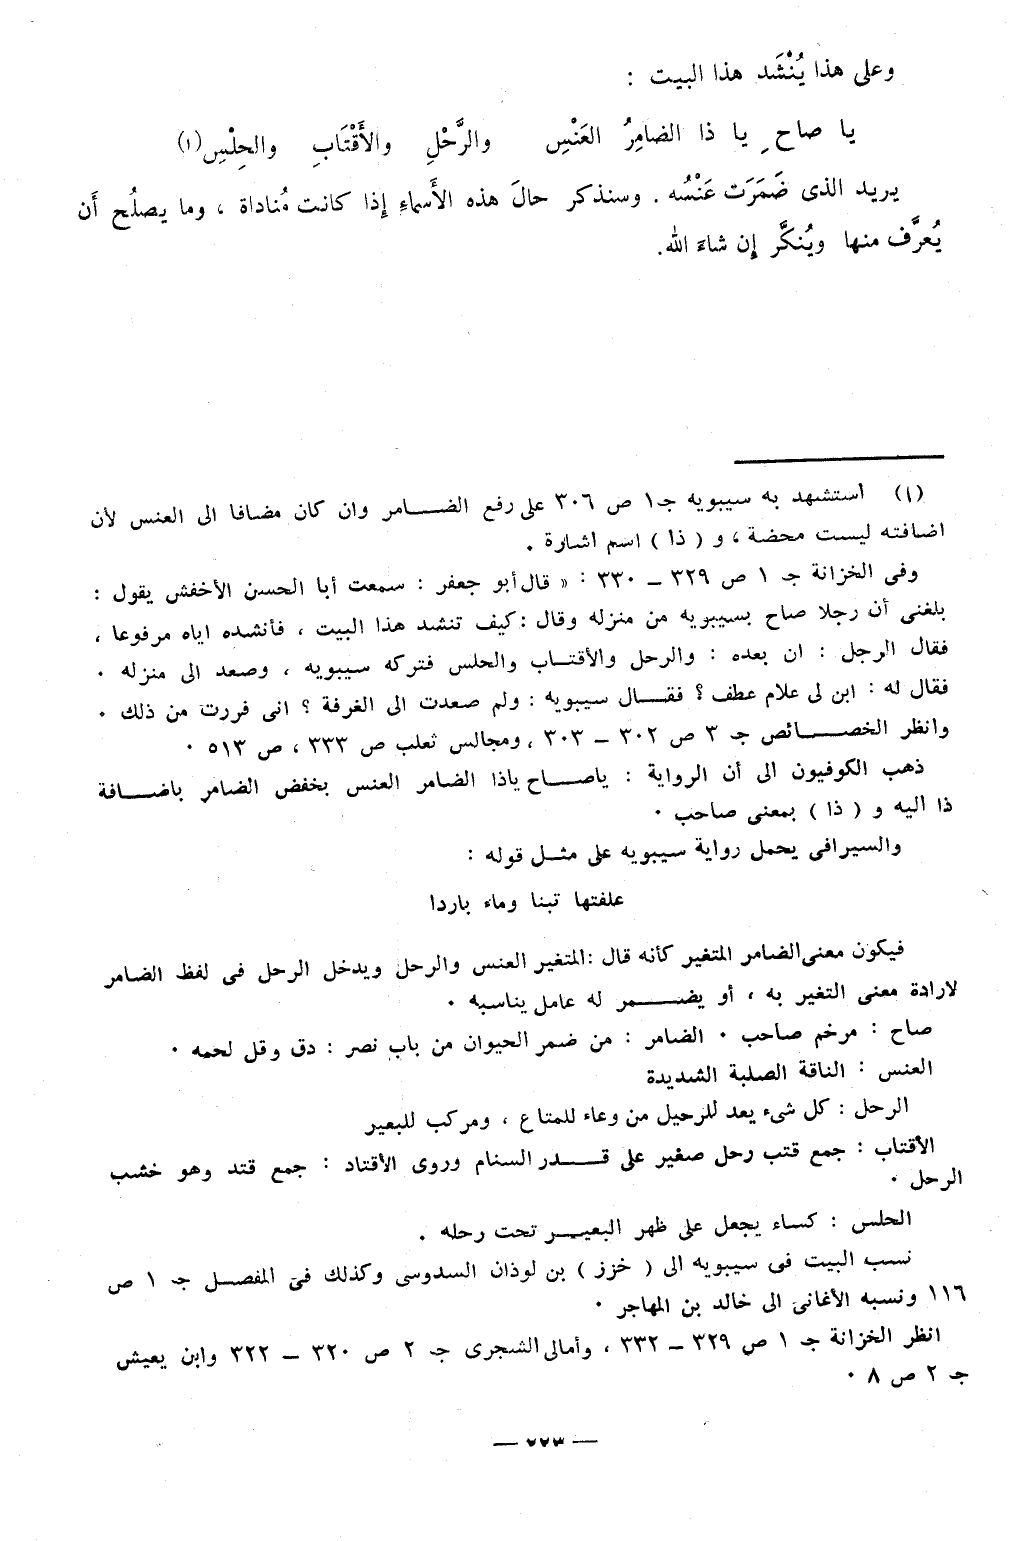 وعلى هذا يُنْشَد هذا البيت :
يا صاحِ يا ذا الضامِرُ العَنْسِ والرَّحْلِ والأَقْتَابِ والحِلْسِ(١)
يريد الذى ضَمَرَت عَنْسُه . وسنذكر حالَ هذه الأَسماءِ إِذا كانت مُناداة ، وما يصلُح أَن
يُعرَّف منها ويُنكَّر إِن شاءَ الله.
(١) استشهد به سيبويه جـ١ ص ٣٠٦ على رفع الضامر وان كان مضافا الى العنس لأن
اضافته ليست محضة ، و ( ذا ) اسم اشارة ٠
وفى الخزانة جـ ١ ص ٣٢٩ ــ ٣٣٠ : « قال أبو جعفر : سمعت أبا الحسن الأخفش يقول :
بلغنى أن رجلا صاح بسيبويه من منزله وقال : كيف تنشد هذا البيت ، فأنشده اياه مرفوعا ،
فقال الرجل : ان بعده : والرحل والأقتاب والحلس فتركه سيبويه ، وصعد الى منزله ٠
فقال له : ابن لى علام عطف ؟ فقال سيبويه : ولم صعدت الى الغرفة ؟ انى فررت من ذلك ٠
وانظر الخصائص جـ ٣ ص ٣٠٢ ــ ٣٠٣ ، ومجالس ثعلب ص ٣٣٣ ، ص ٥١٣ ٠
ذهب الكوفيون الى أن الرواية : ياصاح ياذا الضامر العنس بخفض الضامر باضافة
ذا اليه و ( ذا ) بمعنى صاحب ٠
والسيرافى يحمل رواية سيبويه على مثل قوله :
علفتها تبنا وماء باردا
فيكون معنى الضامر المتغير كأنه قال : المتغير العنس والرحل ويدخل الرحل فى لفظ الضامر
لارادة معنى التغير به ، أو يضمر له عامل يناسبه ٠
صاح : مرخم صاحب ٠ الضامر : من ضمر الحيوان من باب نصر : دق وقل لحمه ٠
العنس : الناقة الصلبة الشديدة
الرحل : كل شىء يعد للرحيل من وعاء للمتاع ، ومركب للبعير
الأقتاب : جمع قتب رحل صغير على قدر السنام وروى الأقتاد : جمع قتد وهو خشب
الرحل ٠
الحلس : كساء يجعل على ظهر البعير تحت رحله ٠
نسب البيت فى سيبويه الى ( خزز ) بن لوذان السدوسى وكذلك فى المفصل جـ ١ ص
١١٦ ونسبه الأغانى الى خالد بن المهاجر ٠
انظر الخزانة جـ ١ ص ٣٢٩ ــ ٣٣٢ ، وأمالى الشجرى جـ ٢ ص ٣٢٠ ــ ٣٢٢ وابن يعيش
جـ ٢ ص ٨ ٠
— ٢٢٣ —